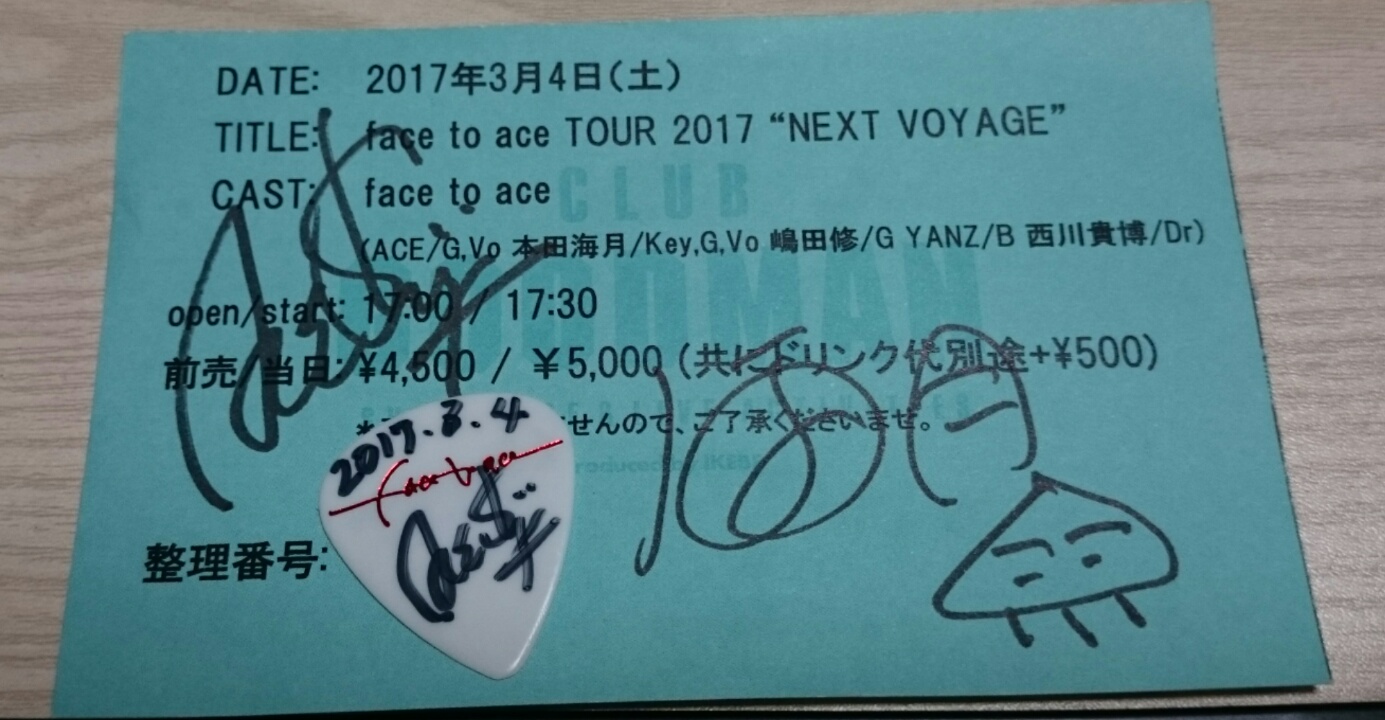 DATE: 2017年3月4日(土)
TITLE: face to ace TOUR 2017 “NEXT VOYAGE”
CAST: face to ace
CLUB
(ACE/G,Vo 本田海月/Key,G,Vo 嶋田修/G YANZ/B 西川貴博/Dr)
GOODMAN
open/start: 17:00 / 17:30
前売/当日: ¥4,500 / ¥5,000 (共にドリンク代別途+¥500)
せんので、ご了承くださいませ。
2017.3.4
face to ace
produced by IKEBE
整理番号: